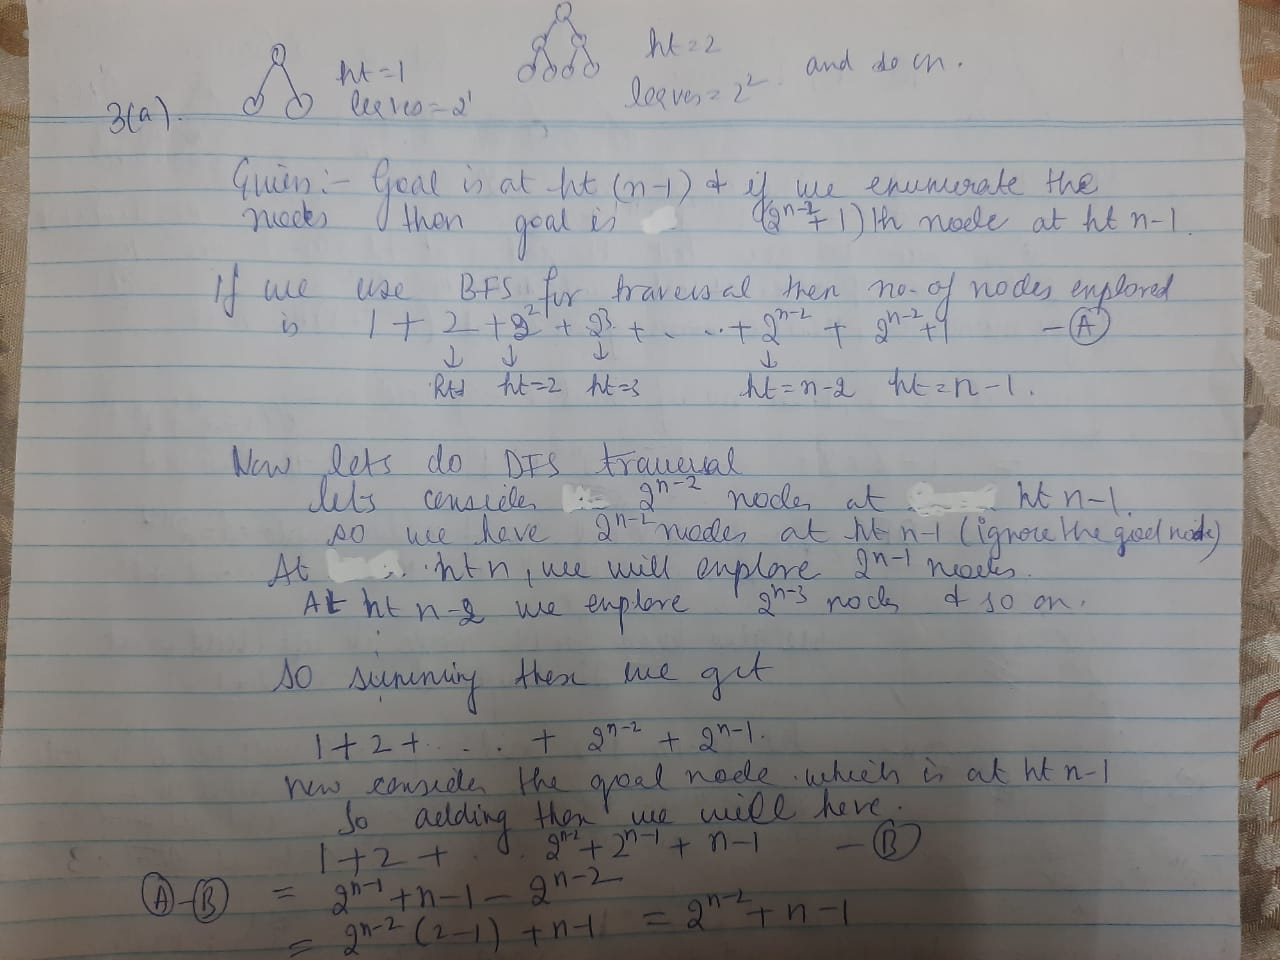 ht=1
leaves=2¹
ht=2
leaves=2²
and so on.
3(a).
Given:- Goal is at ht (n-1) & if we enumerate the
nodes then goal is (2ⁿ⁻²+1)th node at ht n-1.
If we use BFS for traversal then no. of nodes explored
is 1 + 2 + 2² + 2³ + . . . + 2ⁿ⁻² + 2ⁿ⁻²+1 - (A)
↓ ↓ ↓ ↓
ht=1 ht=2 ht=3 ht=n-2 ht=n-1.
Now lets do DFS traversal
lets consider 2ⁿ⁻² nodes at ht n-1.
so we have 2ⁿ⁻² nodes at ht n-1 (ignore the goal node)
At ht n, we will explore 2ⁿ⁻¹ nodes.
At ht n-2 we explore 2ⁿ⁻³ nodes & so on.
So summing these we get
1 + 2 + . . . . + 2ⁿ⁻² + 2ⁿ⁻¹.
now consider the goal node which is at ht n-1
So adding then we will have.
1 + 2 + . . 2ⁿ⁻² + 2ⁿ⁻¹ + n-1 - (B)
(A)-(B) = 2ⁿ⁻¹ + n-1 - 2ⁿ⁻²
= 2ⁿ⁻² (2-1) + n-1 = 2ⁿ⁻² + n-1